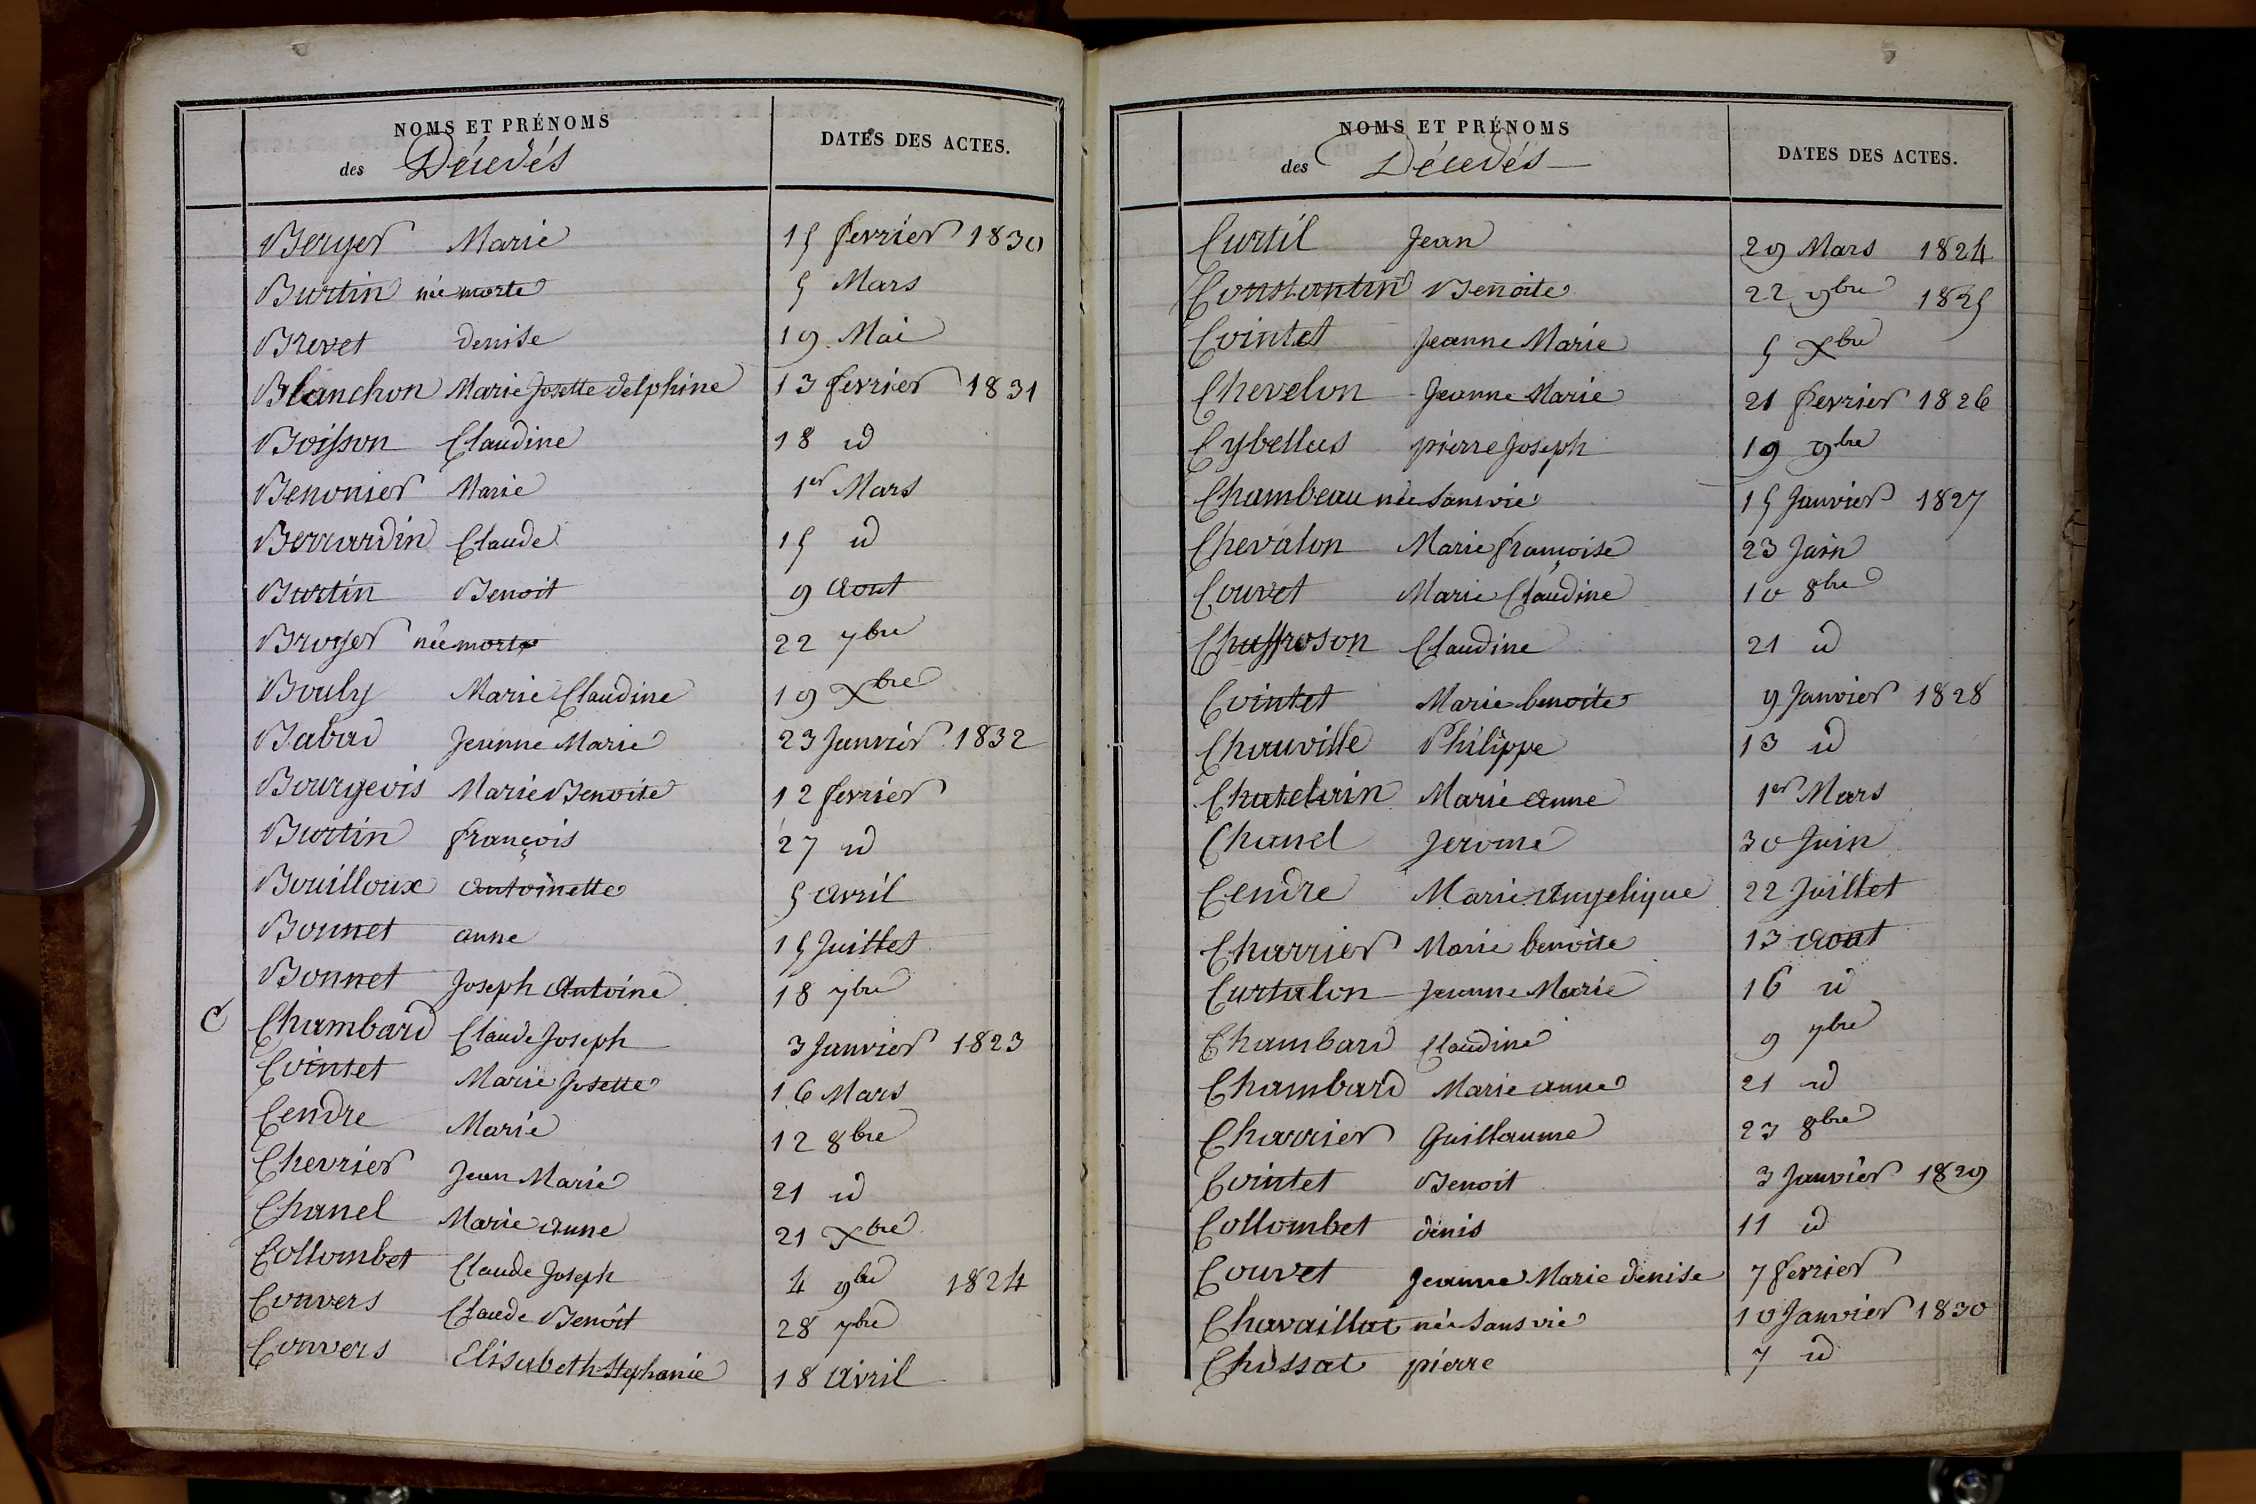 NOMS ET PRÉNOMS
des Décédés
DATES DES ACTES.
Berger Marie 15 fevrier 1830
Burtin née morte 5 Mars
Brevet denise 19 Mai
Blanchon Marie Josette delphine 13 fevrier 1831
Boisson Claudine 18 id
Benonier Marie 1er Mars
Berrardin Claude 15 id
Burtin Benoit 9 aout
Broyer née morte 22 7bre
Bouly Marie Claudine 19 Xbre
Babad Jeanne Marie 23 Janvier 1832
Bourgeois Marie Benoite 12 fevrier
Burtin françois 27 id
Bouilloux antoinette 5 avril
Bonnet anne 15 Juillet
Bonnet Joseph Antoine 18 7bre
C Chambard Claude Joseph 3 Janvier 1823
Cointet Marie Josette 16 Mars
Cendre Marie 12 8bre
Chevrier Jean Marie 21 id
Chanel Marie anne 21 Xbre
Collombet Claude Joseph 4 9bre 1824
Convers Claude Benoit 28 7bre
Convers Elisabeth Stephanie 18 avril
NOMS ET PRÉNOMS
des Décédés
DATES DES ACTES.
Curtil Jean 29 Mars 1824
Constantin Benoite 22 9bre 1825
Cointet Jeanne Marie 5 Xbre
Chevelon Jeanne Marie 21 fevrier 1826
Cybellus pierre Joseph 19 9bre
Chambeau née sans vie 15 Janvier 1827
Chevalon Marie françoise 23 Juin
Couvet Marie Claudine 10 8bre
Chaffroson Claudine 21 id
Cointet Marie benoite 9 Janvier 1828
Chauville Philippe 13 id
Chatelain Marie anne 1er Mars
Chanel Jerome 30 Juin
Cendre Marie Angelique 22 Juillet
Charrier Marie benoite 13 aout
Curtalon Jeanne Marie 16 id
Chambard Claudine 9 7bre
Chambard Marie anne 21 id
Charrier Guillaume 23 8bre
Cointet Benoit 3 Janvier 1829
Collombet denis 11 id
Couvet Jeanne Marie denise 7 fevrier
Chavaillat née sans vie 10 Janvier 1830
Chissat pierre 7 id